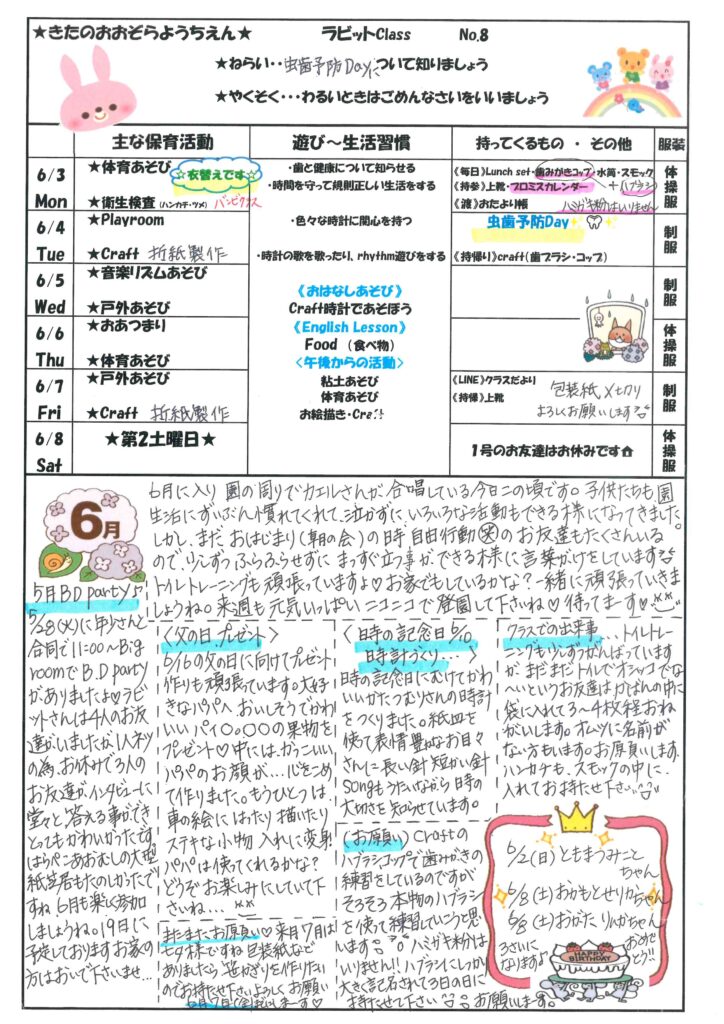 ★きたのおおぞらようちえん★ ラビットClass No.8
★ねらい‥虫歯予防Dayについて知りましょう
★やくそく・・・わるいときはごめんなさいをいいましょう
主な保育活動 遊び～生活習慣 持ってくるもの ・ その他 服装
6/3 Mon
★体育あそび ☆衣替えです☆
★衛生検査 (ハンカチ・ツメ) バンビクラス
・歯と健康について知らせる
・時間を守って規則正しい生活をする
《毎日》Lunch set・歯みがきコップ・水筒・スモック
《持参》上靴・プロミスカレンダー +ハブラシ
《渡》おたより帳 ハミガキ粉はいりません
体操服
6/4 Tue
★Playroom
★Craft 折紙製作
・色々な時計に関心を持つ
・時計の歌を歌ったり、rhythm遊びをする
虫歯予防Day
《持帰り》craft(歯ブラシ・コップ)
制服
6/5 Wed
★音楽リズムあそび
★戸外あそび
《おはなしあそび》
Craft時計であそぼう
制服
6/6 Thu
★おあつまり
★体育あそび
《English Lesson》
Food (食べ物)
<午後からの活動>
体操服
6/7 Fri
★戸外あそび
★Craft 折紙製作
粘土あそび
体育あそび
お絵描き・Craft
《LINE》クラスだより
《持帰》上靴
包装紙〆切り
よろしくお願いします
制服
6/8 Sat
★第2土曜日★
1号のお友達はお休みです
体操服
6月
6月に入り園の周りでカエルさんが合唱している今日この頃です。子供たちも園
生活にずいぶん慣れてくれて、泣かずに、いろいろな活動もできる様になってきました。
しかし、まだ、おはじまり(朝の会)の時、自由行動 のお友達もたくさんいる
ので、少しずつふらふらせずに まっすぐ立つ事ができる様に言葉がけをしています
トイレトレーニングも頑張っていますよ♡お家でもしているかな?一緒に頑張っていきま
しょうね。来週も元気いっぱいニコニコで登園して下さいね♡待ってます♡
5月B.D party♪
5/28(火)に年少さんと
合同で11:00~Big
roomでB.D party
がありましたよ♡ラビ
ットさんは4人のお友
達がいましたが1人ネツ
の為、お休みで3人の
お友達がインタビューに
堂々と答える事ができ
とってもかわいかったです
はらぺこあおむしの大型
紙芝居もたのしかったで
すね 6月も楽しく参加
しましょうね。19日に
予定しておりますお家の
方はおいで下さいませ…
〈父の日プレゼント〉
6/16の父の日に向けてプレゼント
作りも頑張っています。大好
きなパパへ おいしそうでかわ
いいパイ〇。〇〇の果物を
プレゼント♡中には、かっこいい
パパのお顔が…心をこめ
て作りました。もうひとつは
車の絵にはったり描いたり
ステキな小物入れに変身
パパは使ってくれるかな?
どうぞお楽しみにしていて下
さいね…
またまたお願い♡来月7月は
七夕様ですね包装紙など
ありましたら笹かざりを作りたい
のでお持たせ下さいよろしくお願い
〈時の記念日6/10
時計づくり…〉
時の記念日にむけてかわ
いいかたつむりさんの時計
をつくりました。紙皿を
使って表情豊かなお目々
さんに長い針短かい針
songもうたいながら時の
大切さを知らせています。
〈お願い〉Craftの
ハブラシコップで歯みがきの
練習をしているのですが
そろそろ本物のハブラシ
を使って練習していこうと思
います ハミガキ粉は
いりません!!ハブラシにしっかり
大きく記名されて3日の日に
持たせて下さい お願いします。
クラスでの出来事…トイレトレ
ーニングも少しずつがんばっています
が、まだまだトイレでオシッコでな
~いというお友達はかばんの中に
袋に入れて3~4枚程おね
がいします。オムツに名前が
ない方もいます。お願いします
ハンカチも、スモックの中に
入れてお持たせ下さい
6/2(日)ともまつみこと
ちゃん
6/8(土)おかもとせりかちゃん
6/8(土)おがたりんかちゃん
3さいに
なりますよ
おめで
とう!!
HAPPY
BIRTHDAY